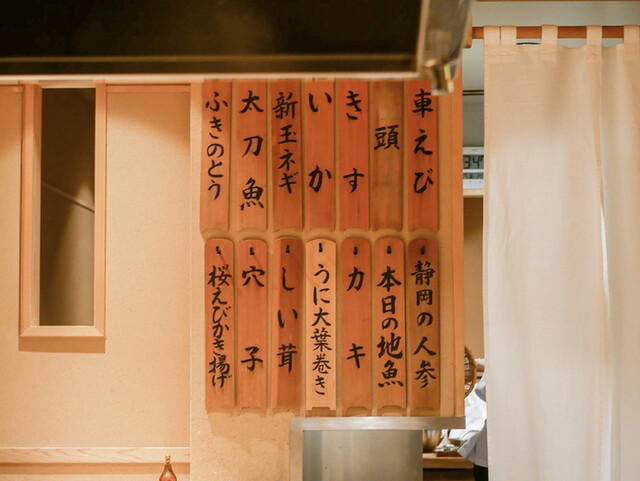 車えび
頭
きす
いか
新玉ネギ
太刀魚
ふきのとう
静岡の人参
本日の地魚
カキ
うに大葉巻き
しい茸
穴子
桜えびかき揚げ
34